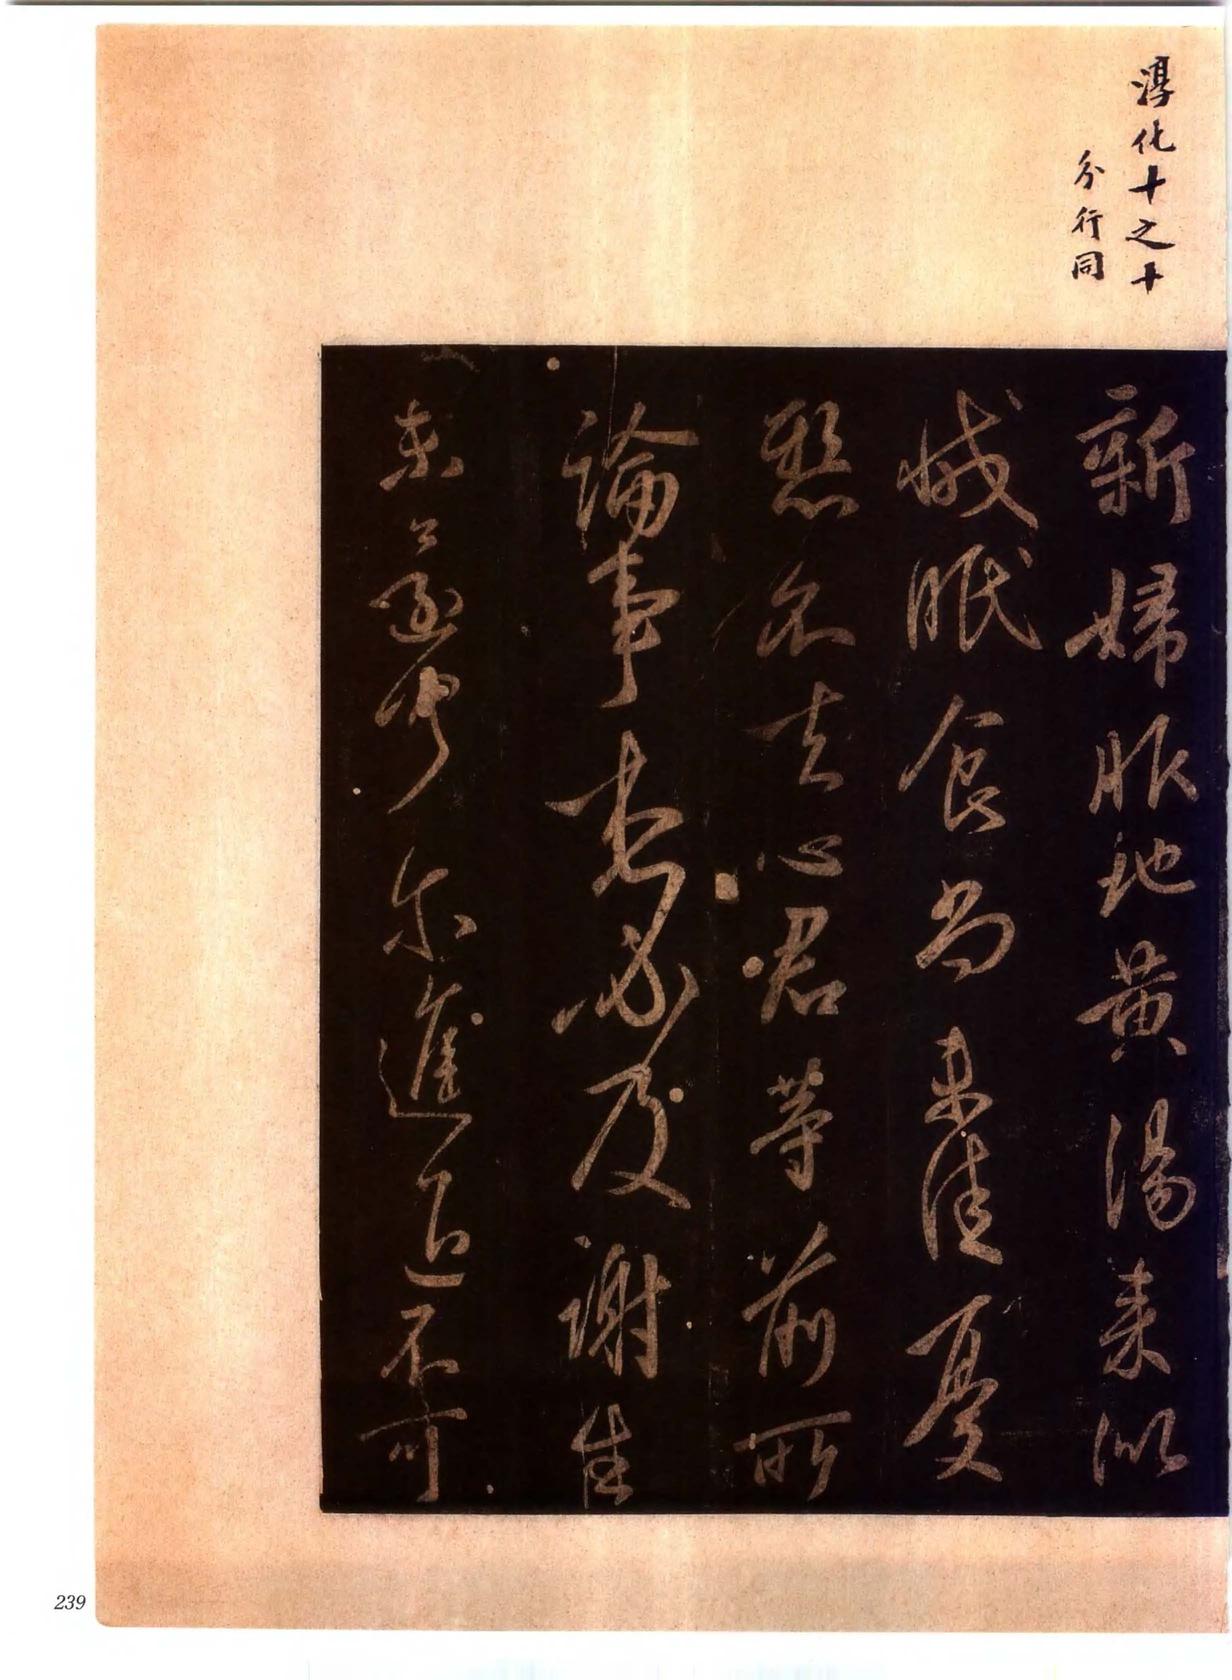 淳化十之十
分行同
新婦服地黃湯来似
減眠食尚未佳憂
懸不去心君等前所
論事想必及謝生
未還可爾進退不可
239